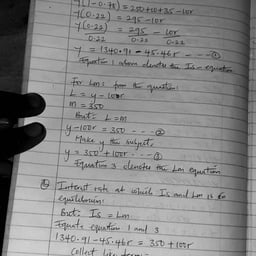 y(1-0.78) = 250+10+35-10r
y(0.22) = 295-10r
y(0.22) = 295 - 10r
0.22 0.22 0.22
y = 1340.91 - 45.46r --- ①
Equation 1 above denotes the Is-equation
For Lm: from the question:
L = y - 100r
m = 350
But: L = m
y-100r = 350 --- ②
Make y the subject.
y = 350 + 100r --- ③
Equation 3 denotes the Lm equation
Interest rate at which Is and Lm is in
equilibrium:
But: Is = Lm
Equate equation 1 and 3
1340.91 - 45.46r = 350 + 100r
Collect like terms